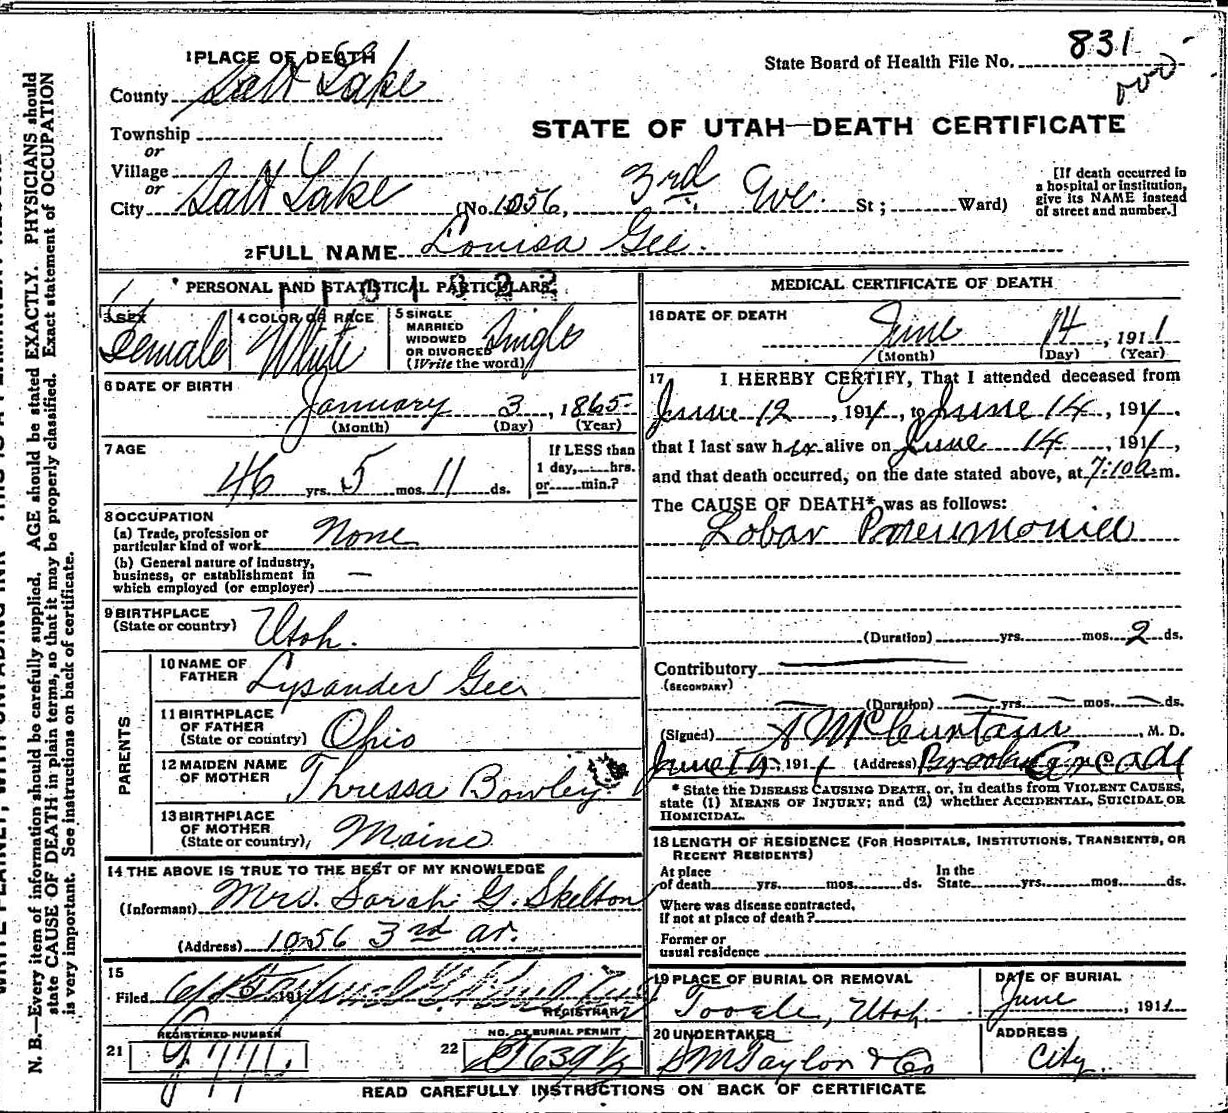 WRITE PLAINLY, WITH UNFADING INK—THIS IS A PERMANENT RECORD
N. B.—Every item of information should be carefully supplied. AGE should be stated EXACTLY. PHYSICIANS should
state CAUSE OF DEATH in plain terms, so that it may be properly classified. Exact statement of OCCUPATION
is very important. See instructions on back of certificate.
1 PLACE OF DEATH
State Board of Health File No. 831
County Salt Lake
Township
or
Village
or
City Salt Lake (No. 1056, 3rd Ave. St; Ward)
STATE OF UTAH—DEATH CERTIFICATE
[If death occurred in
a hospital or institution,
give its NAME instead
of street and number.]
2 FULL NAME Louisa Gee.
PERSONAL AND STATISTICAL PARTICULARS
3 SEX
Female
4 COLOR OR RACE
White
5 SINGLE
MARRIED
WIDOWED
OR DIVORCED
(Write the word)
Single
6 DATE OF BIRTH
January 3, 1865
(Month) (Day) (Year)
7 AGE
46 yrs. 5 mos. 11 ds.
If LESS than
1 day, hrs.
or min.?
8 OCCUPATION
(a) Trade, profession or
particular kind of work None
(b) General nature of Industry,
business, or establishment in
which employed (or employer) —
9 BIRTHPLACE
(State or country) Utah.
PARENTS
10 NAME OF
FATHER Lysander Gee
11 BIRTHPLACE
OF FATHER
(State or country) Ohio
12 MAIDEN NAME
OF MOTHER Thressa Bowley
13 BIRTHPLACE
OF MOTHER
(State or country) Maine
14 THE ABOVE IS TRUE TO THE BEST OF MY KNOWLEDGE
(Informant) Mrs. Sarah G. Skelton
(Address) 1056 3rd av.
15
Filed 191
REGISTRAR
REGISTERED NUMBER
21
NO. OF BURIAL PERMIT
22
MEDICAL CERTIFICATE OF DEATH
16 DATE OF DEATH
June 14, 1911
(Month) (Day) (Year)
17 I HEREBY CERTIFY, That I attended deceased from
June 12, 1911, to June 14, 1911.
that I last saw her alive on June 14, 1911,
and that death occurred, on the date stated above, at 7:10a.m.
The CAUSE OF DEATH* was as follows:
Lobar Pneumonia
(Duration) yrs. mos. 2 ds.
Contributory
(SECONDARY)
(Duration) — yrs. — mos. — ds.
(Signed) , M. D.
June 191 (Address) Brooks Arcade
* State the DISEASE CAUSING DEATH, or, in deaths from VIOLENT CAUSES,
state (1) MEANS OF INJURY; and (2) whether ACCIDENTAL, SUICIDAL OR
HOMICIDAL.
18 LENGTH OF RESIDENCE (FOR HOSPITALS, INSTITUTIONS, TRANSIENTS, OR
RECENT RESIDENTS)
At place
of death yrs. mos. ds.
In the
State yrs. mos. ds.
Where was disease contracted,
if not at place of death?
Former or
usual residence
19 PLACE OF BURIAL OR REMOVAL
Tooele, Utah.
DATE OF BURIAL
June , 1911
20 UNDERTAKER
S M Taylor & Co
ADDRESS
City.
READ CAREFULLY INSTRUCTIONS ON BACK OF CERTIFICATE